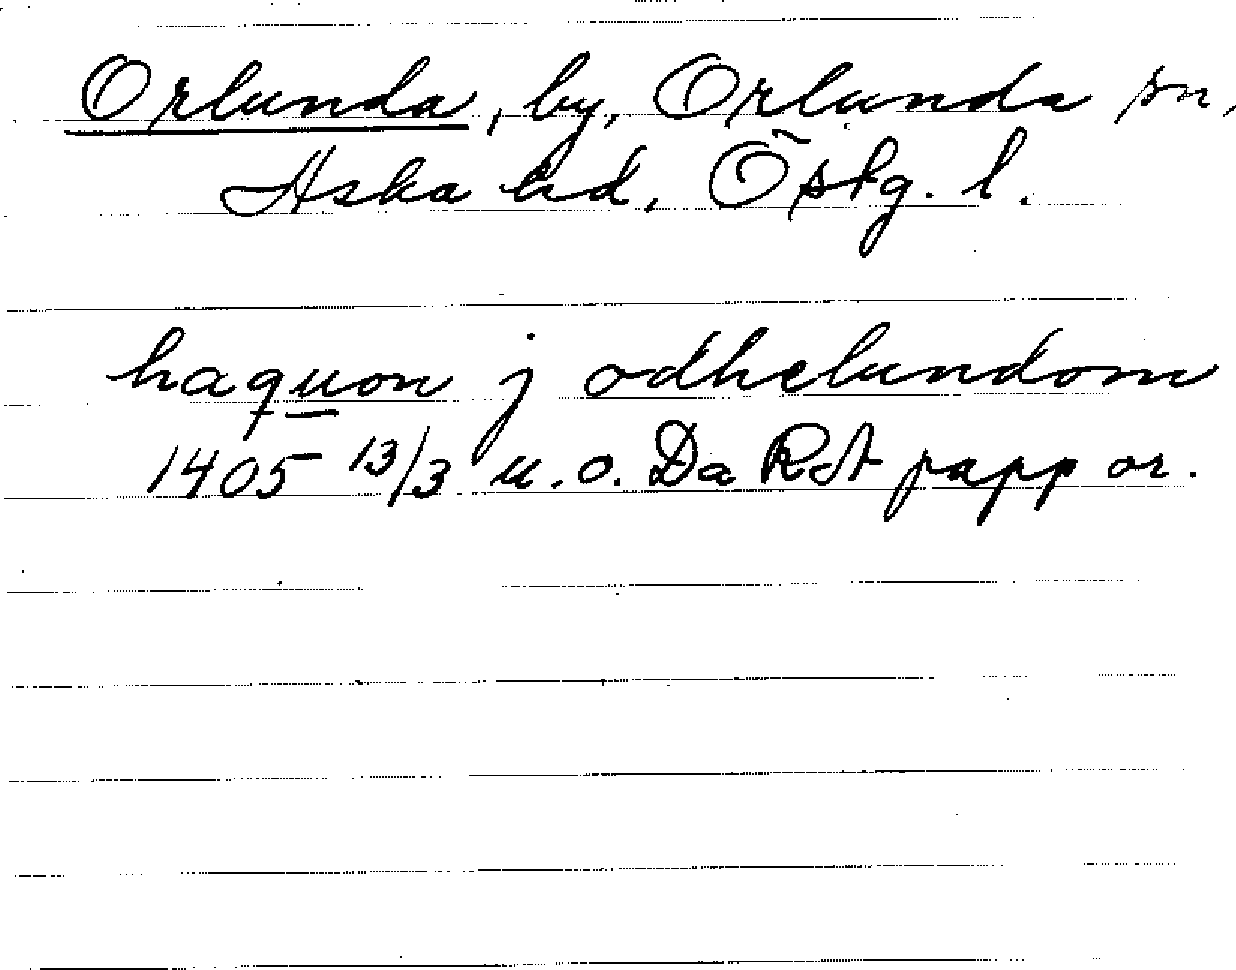 Orlunda, by, Orlunda sn,
Aska hd, Östg. l.
haquon j odhelundom
1405 13/3 u. o. Da RA papp or.